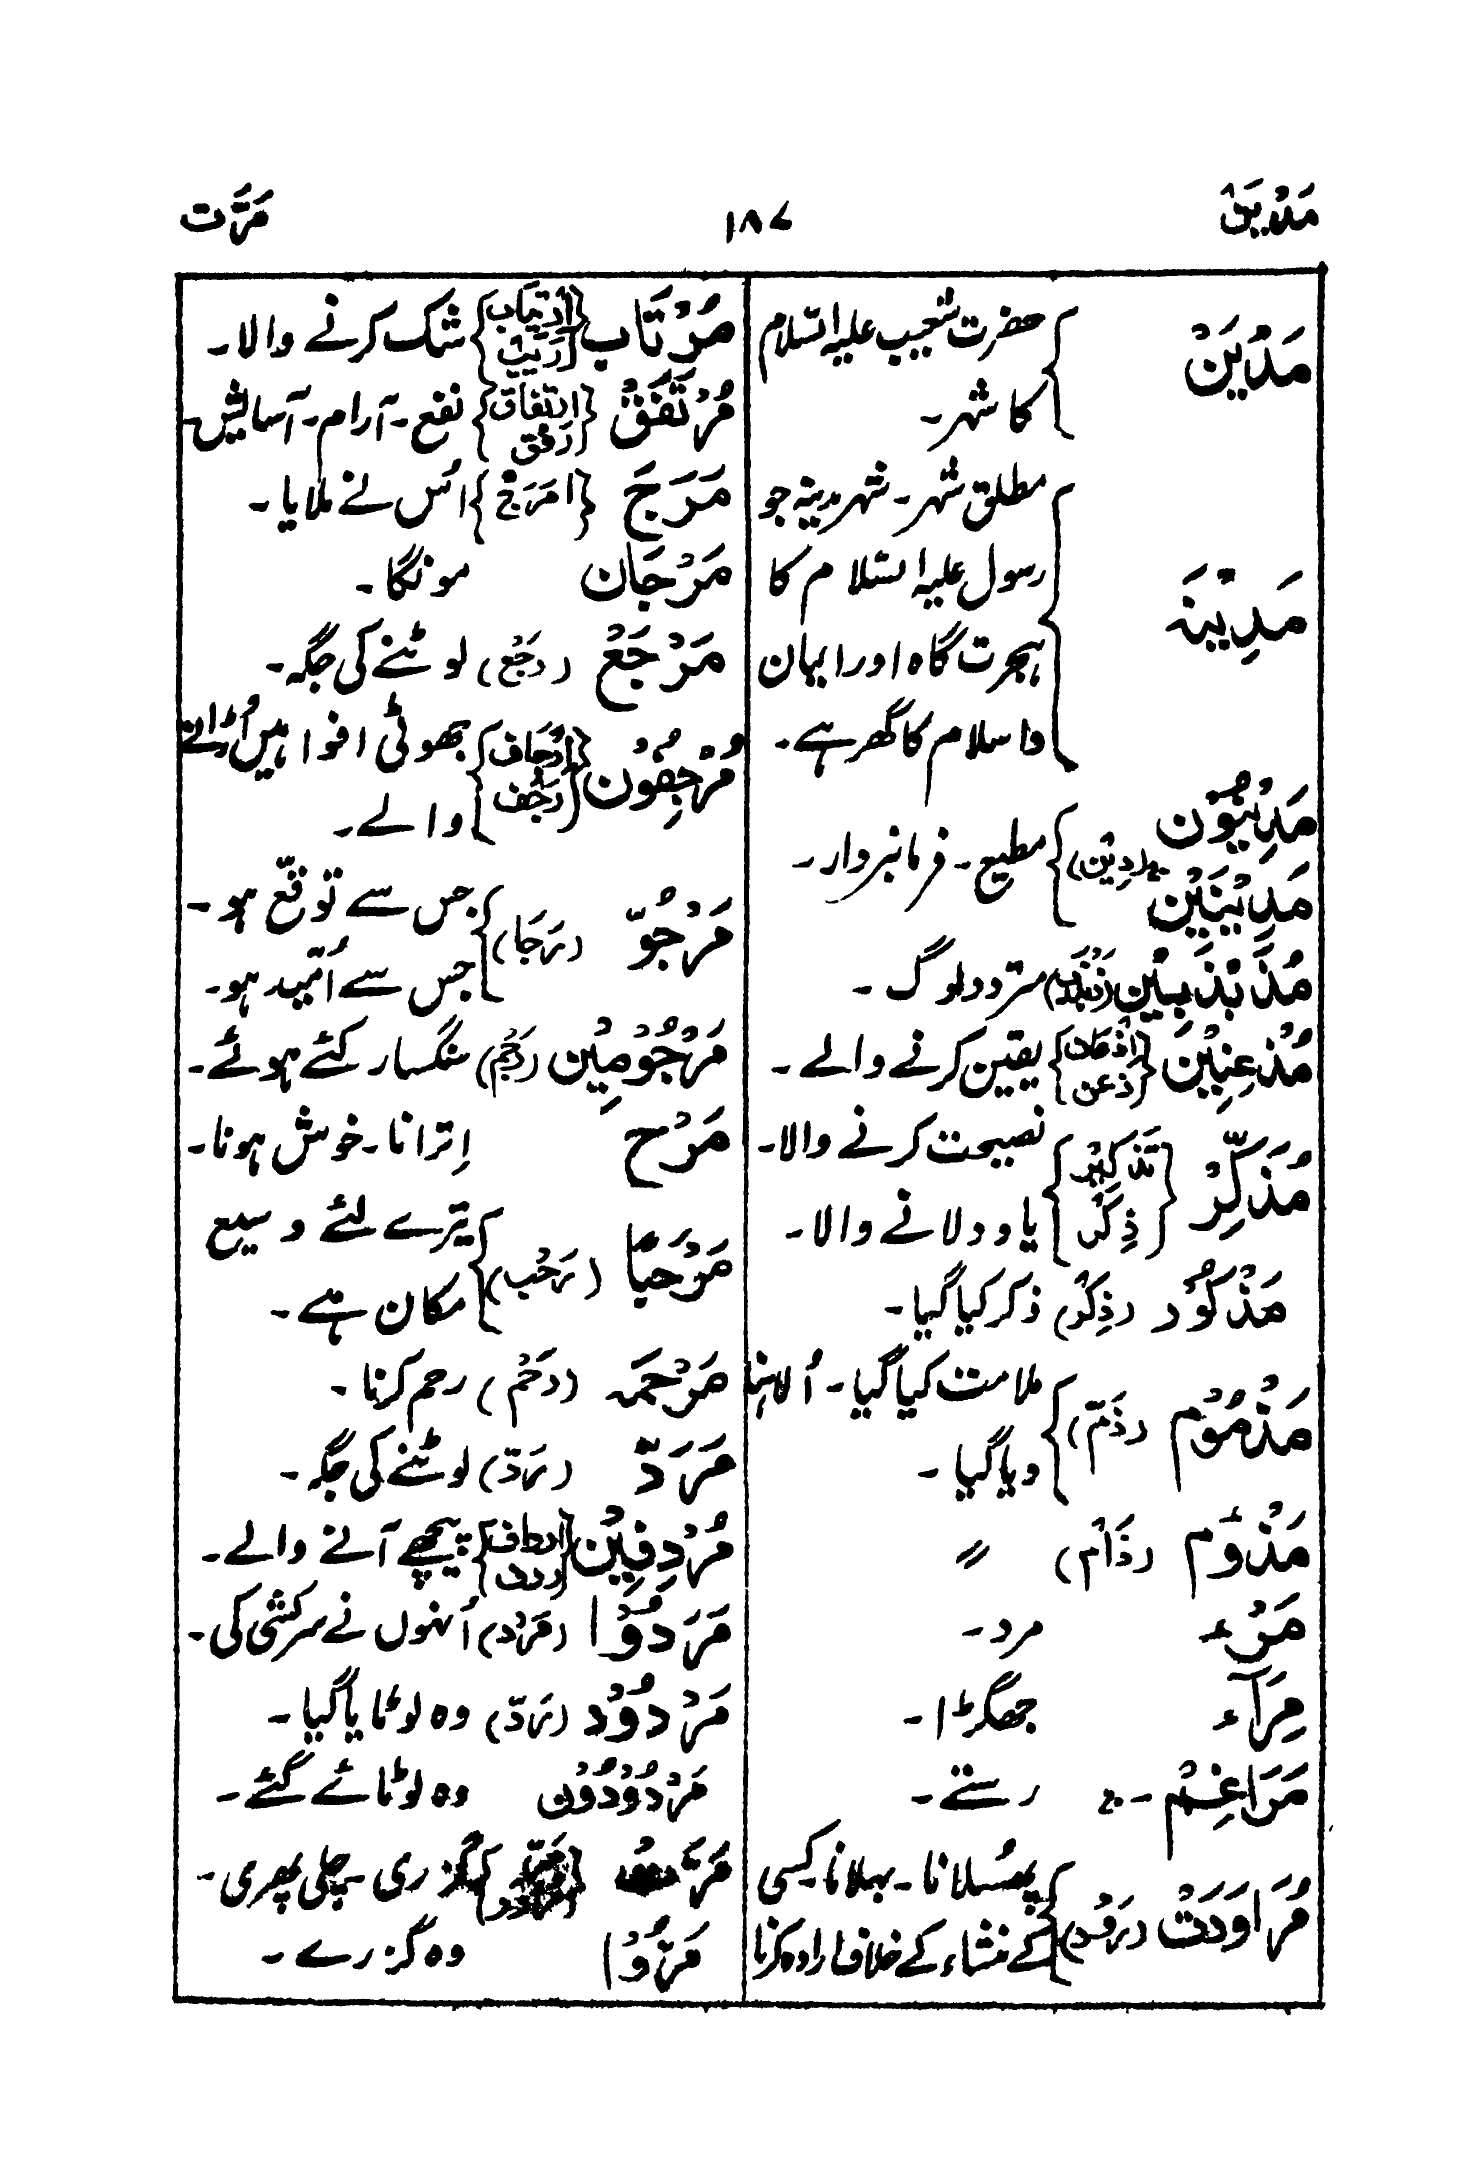 مَدْيَنْ
۱۸۷
مَرَّت
مَدْيَنْ حضرت شعیب علیہ السّلام
کا شہر۔
مَدِيْنَہ مطلق شہر۔ شہر مدینہ جو
رسول علیہ السّلام کا
ہجرت گاہ اور ایمان
و اسلام کا گھر ہے۔
مَدِيْنُوْن
مَدِيْنِيْن (دِيْن) مطیع۔ فرمانبردار۔
مُذَبْذَبِيْن متردد لوگ۔
مُذْعِنِيْن {اِذْعَان ذعن} یقین کرنے والے۔
مُذَكِّرْ {تَذْكِيْر ذِكْر} نصیحت کرنے والا۔
یاد دلانے والا۔
مَذْكُوْر (ذِكْر) ذکر کیا گیا۔
مَذْمُوْم (ذَمّ) ملامت کیا گیا۔ اُلاہنا
دیا گیا۔
مَذْؤُم (ذَاْم) //
مَرْء مرد۔
مِرَآء جھگڑا۔
مَرَاغِمْ رستے۔
مُرَاوَدَتْ (رَوْد) پھُسلانا۔ بہلانا۔ کسی
کے منشاء کے خلاف ارادہ کرنا
مُرْتَاب {اِرْتِيَاب رَيْب} شک کرنے والا۔
مُرْتَفَقْ {اِرتفاق رَفْق} نفع۔ آرام۔ آسایش
مَرَجَ {اَمْرَجْ} اُس نے ملایا۔
مَرْجَان مونگا۔
مَرْجَعْ (رَجْع) لوٹنے کی جگہ۔
مُرْجِفُوْن {اِرْجَاف رَجْف} جھوٹی افواہیں اُڑانے
والے۔
مَرْجُوّ (رَجَا) جس سے توقّع ہو۔
جس سے اُمّید ہو۔
مَرْجُوْمِيْن (رَجْم) سنگسار کئے ہوئے۔
مَرْح اِترانا۔ خوش ہونا۔
مَرْحَبًا (رَحْب) تیرے لئے وسیع
مکان ہے۔
مَرْحَمَہ (رَحْم) رحم کرنا۔
مَرَدّ (رَدّ) لوٹنے کی جگہ۔
مُرْدِفِيْن {ارداف ردف} پیچھے آنے والے۔
مَرَدُوْا (مَرْد) اُنہوں نے سرکشی کی۔
مَرْدُوْد (رَدّ) وہ لوٹایا گیا۔
مَرْدُوْدُوْن وہ لوٹائے گئے۔
گزری۔ چلی پھری۔
مَرُّوْا وہ گزرے۔